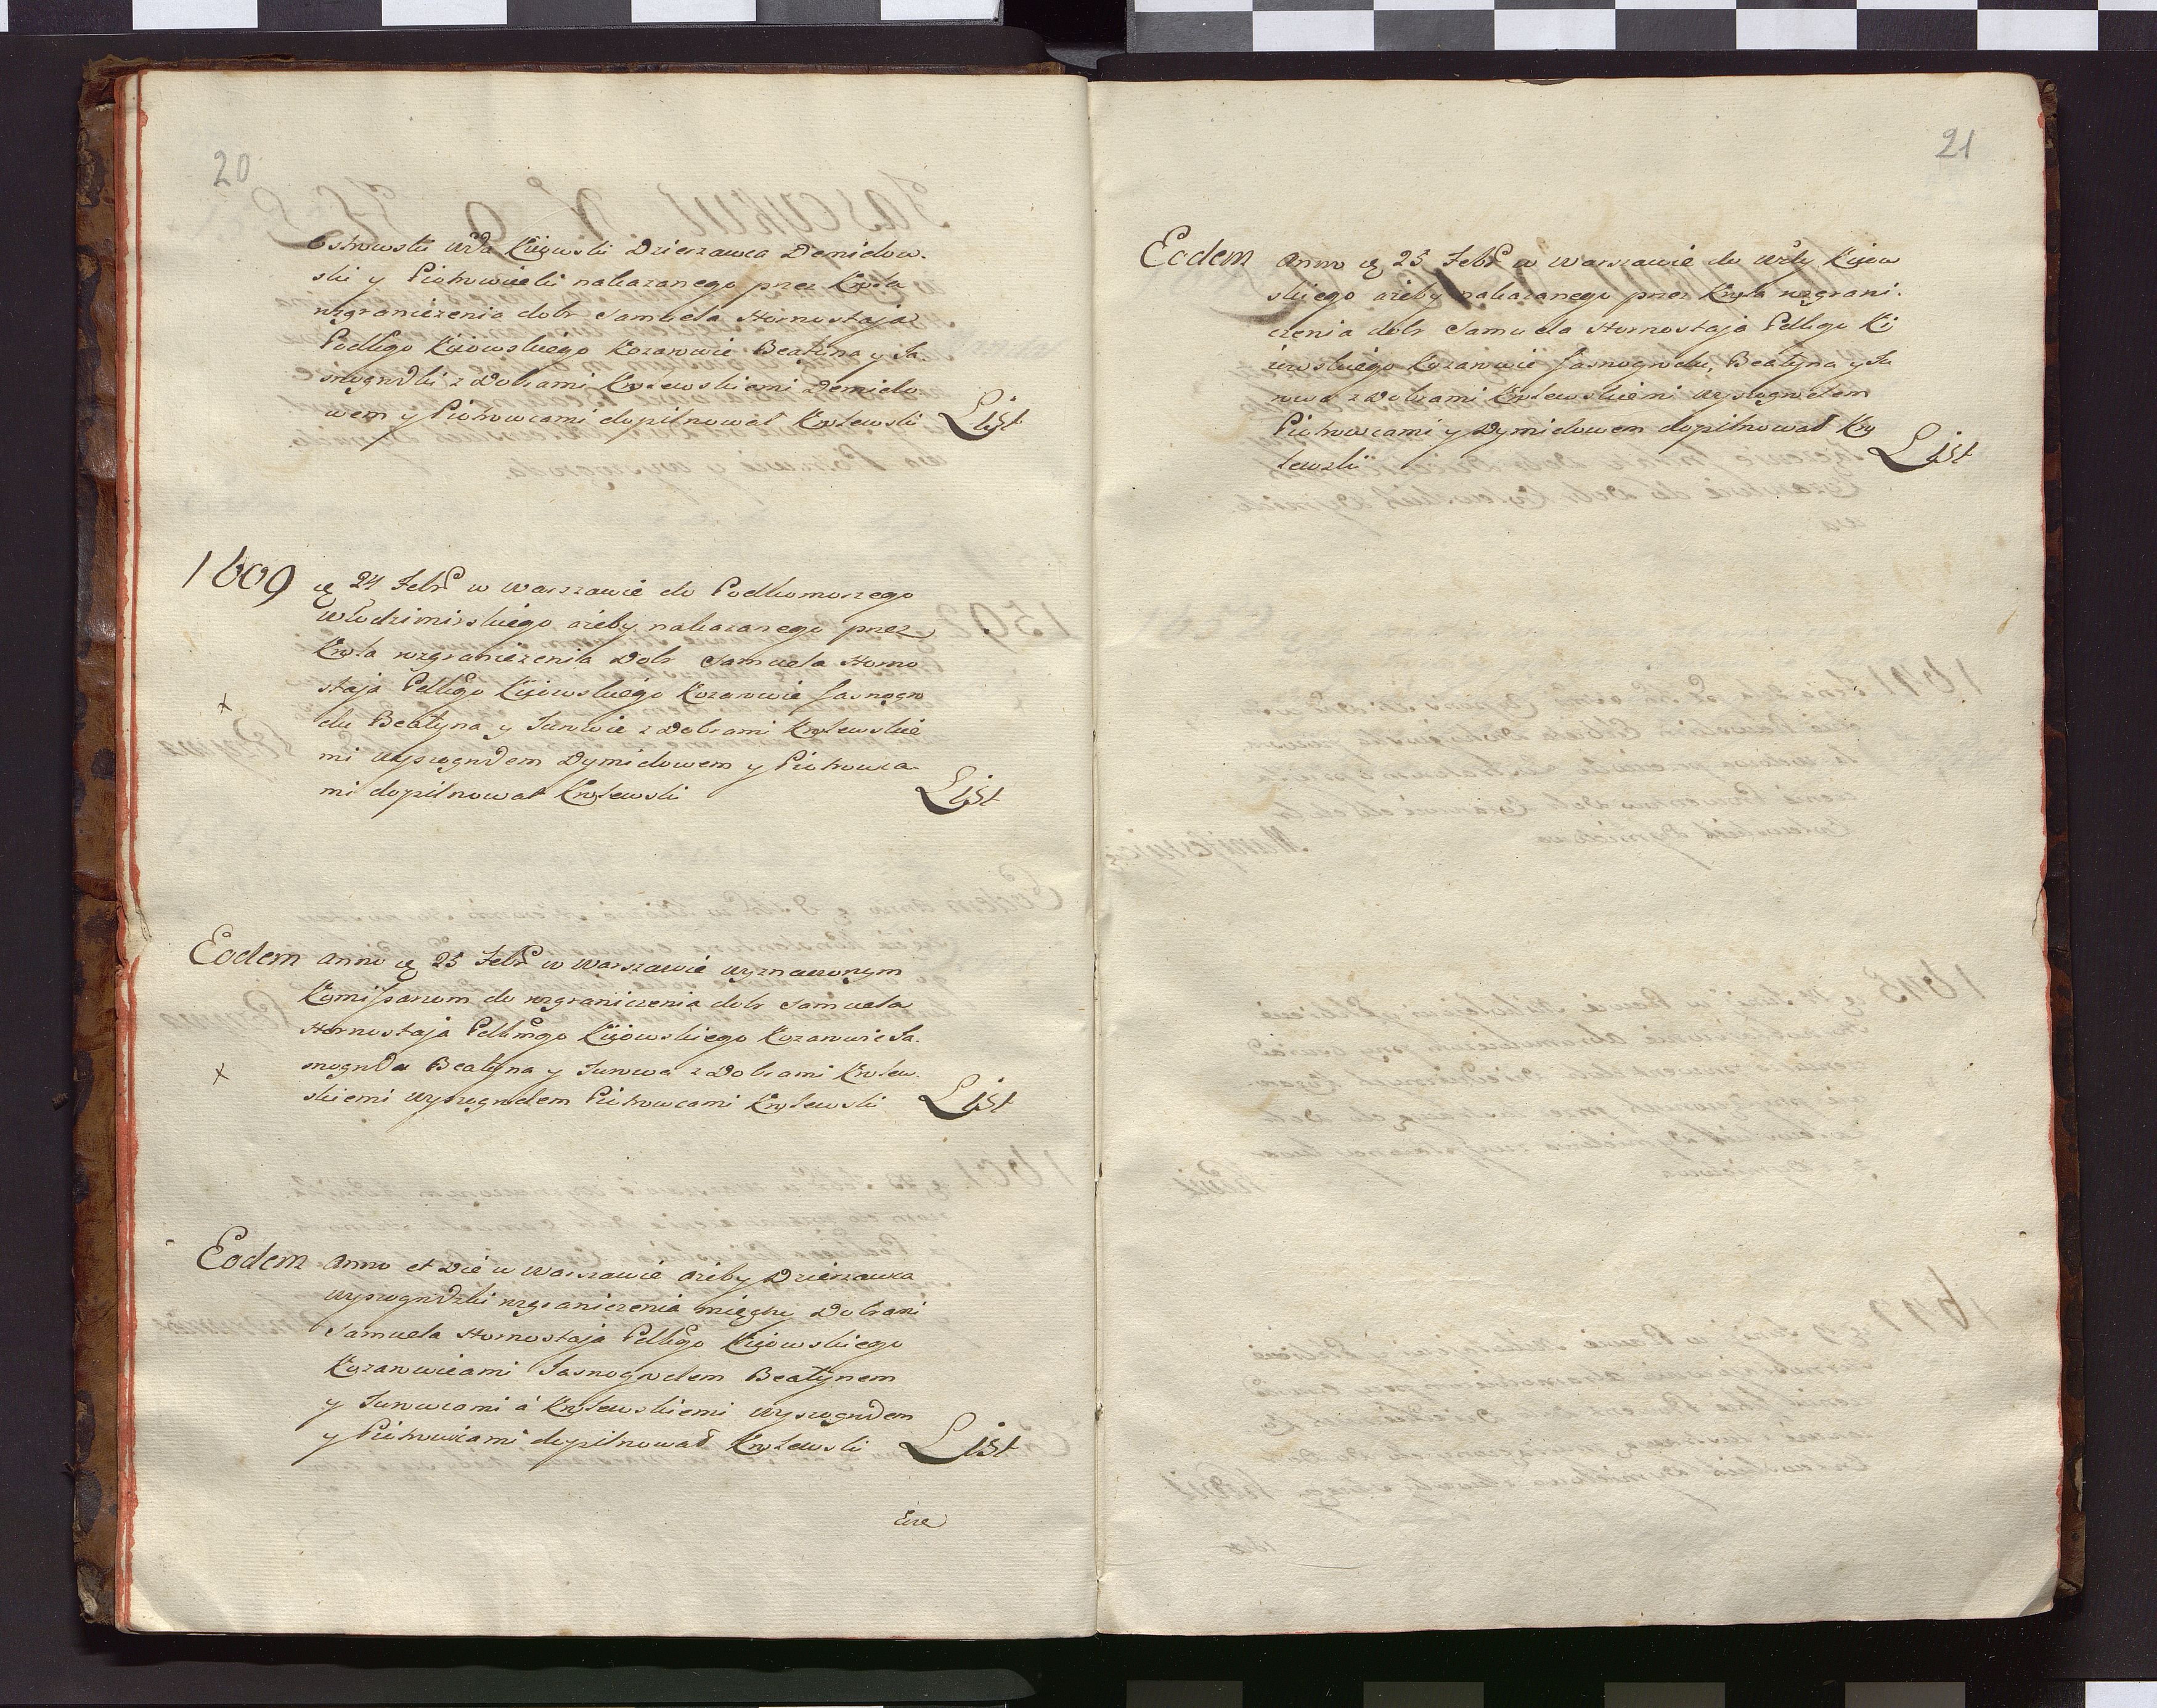 20
Ostrowski Wda Kiiowski Dzierzawca Demidow.
ski y Piotrowiecki nakazanego przez Krola
rozgraniczenia dobr Samuela Hornostaja
Podkgo Kiiowskiego Kozarowic Beatyna y Ja
snogrodki z Dobrami Krolewskiemi Demido
wem y Piotrowcami dopilnował Krolewski List
1609 d 24 Febr w Warszawie do Podkomorzego
Włodzimirskiego ażeby nakazanego przez
Krola rozgraniczenia Dobr Samuela Horno
staja Pdkgo Kiiowskiego Kozarowic Jasnogro
du Beatyna y Jurowic z Dobrami Krolewskie
mi Wyszogrodem Dymidowem y Piotrowca
mi dopilnował Krolewski List
x
Eodem anno d 25 Febr w Warszawie wyznaczonym
Kommissarzom do rozgraniczenia dobr Samuela
Hornostaja Pdkmgo Kiiowskiego Kozarowic Ja.
snogroda Beatyna y Jurowa z Dobrami Krolew.
skiemi Wyszogrodem Piotrowcami Krolewski List
x
Eodem anno et Die w Warszawie ażeby Dzierzawca
Wyszogrodzki rozgraniczenia między Dobrami
Samuela Hornostaja Pdkgo Kiiowskiego
Kozarowicami Jasnogrodem Beatynem
y Jurowcami á Krolewskiemi Wyszogrodem
y Piotrowcami dopilnował Krolewski List
21
Eodem anno d 25 Febr w Warszawie do Wdy Kiiow
skiego ażeby nakazanego przez Krola rozgrani.
czenia dobr Samuela Hornostaja Pdkgo Ki
iowskiego Kozarowic Jasnogrodu, Beatyna y Ju
rowa z Dobrami Krolewskiemi Wyszogrodem
Piotrowcami y Dymidowem dopilnował Kro
lewski List